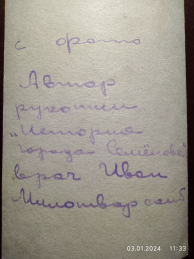 с фото
Автор
рукописи
"История
города Семёнова"
врач Иван
Милотворский
03.01.2024 11:33